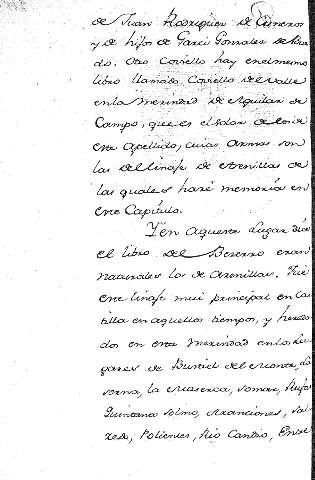 de Juan Rodriguez de Cisneros
y de hijos de Garci Gonzalez de
do. Otro Coviello hay en el mesmo
libro llamado Coviello del valle
en la Merindad de Aguilar de
Campo, que es el solar de los de
este Apellido, cuias armas son
las del linaje de Arenillas de
las quales haré memoria en
este Capitulo.
Yen aqueste Lugar dice
el libro del Becerro eran
naturales los de Arenillas. Fue
este linaje mui principal en Cas
tilla en aquellos tiempos, y hereda
dos en esta Merindad en los Lu
gares de Bustiel del
serna, la
Quintana
Polientes, Rio Cantio, Entre